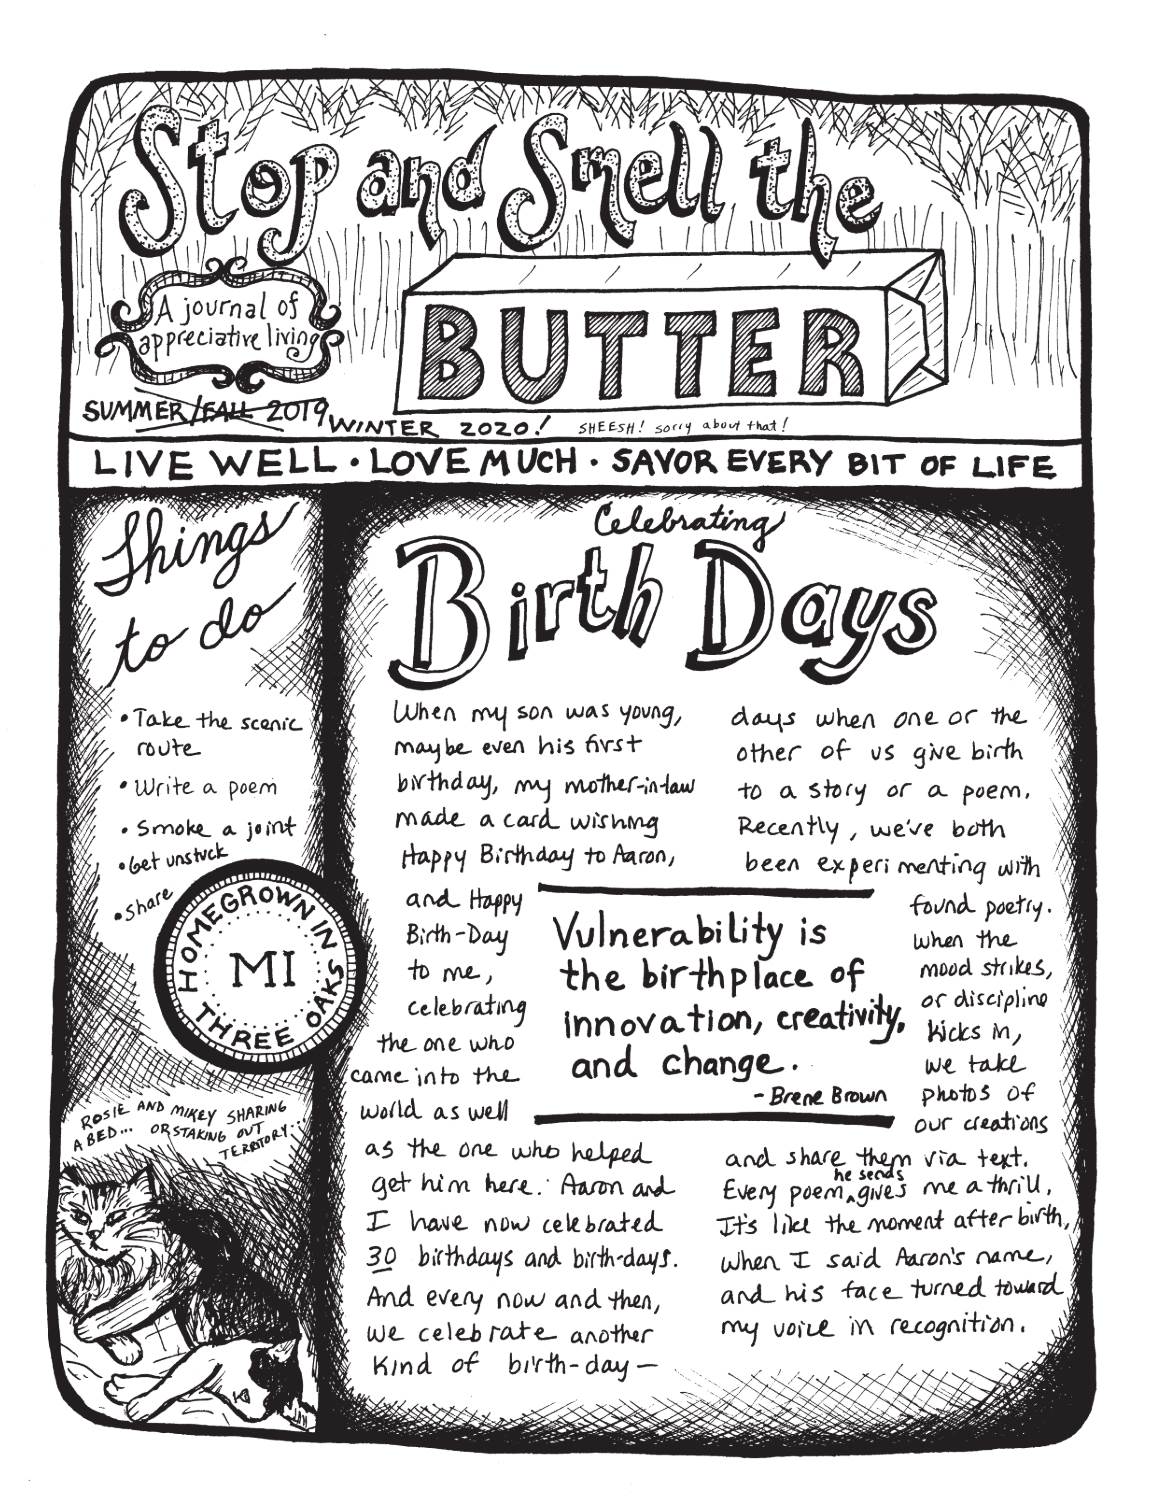 Stop and Smell the
BUTTER
A journal of
appreciative living
SUMMER/FALL 2019 WINTER 2020! SHEESH! sorry about that!
LIVE WELL • LOVE MUCH • SAVOR EVERY BIT OF LIFE
Things
to do
• Take the scenic
route
• Write a poem
• Smoke a joint
• Get unstuck
• Share
HOMEGROWN IN
MI
THREE OAKS
ROSIE AND MIKEY SHARING
A BED... OR STAKING OUT
TERRITORY...
Celebrating
Birth Days
When my son was young,
maybe even his first
birthday, my mother-in-law
made a card wishing
Happy Birthday to Aaron,
and Happy
Birth-Day
to me,
celebrating
the one who
came into the
world as well
as the one who helped
get him here. Aaron and
I have now celebrated
30 birthdays and birth-days.
And every now and then,
we celebrate another
kind of birth-day—
Vulnerability is
the birthplace of
innovation, creativity,
and change.
- Brene Brown
days when one or the
other of us give birth
to a story or a poem.
Recently, we've both
been experimenting with
found poetry.
When the
mood strikes,
or discipline
kicks in,
we take
photos of
our creations
and share them via text.
Every poem he sends gives me a thrill.
It's like the moment after birth,
when I said Aaron's name,
and his face turned toward
my voice in recognition.